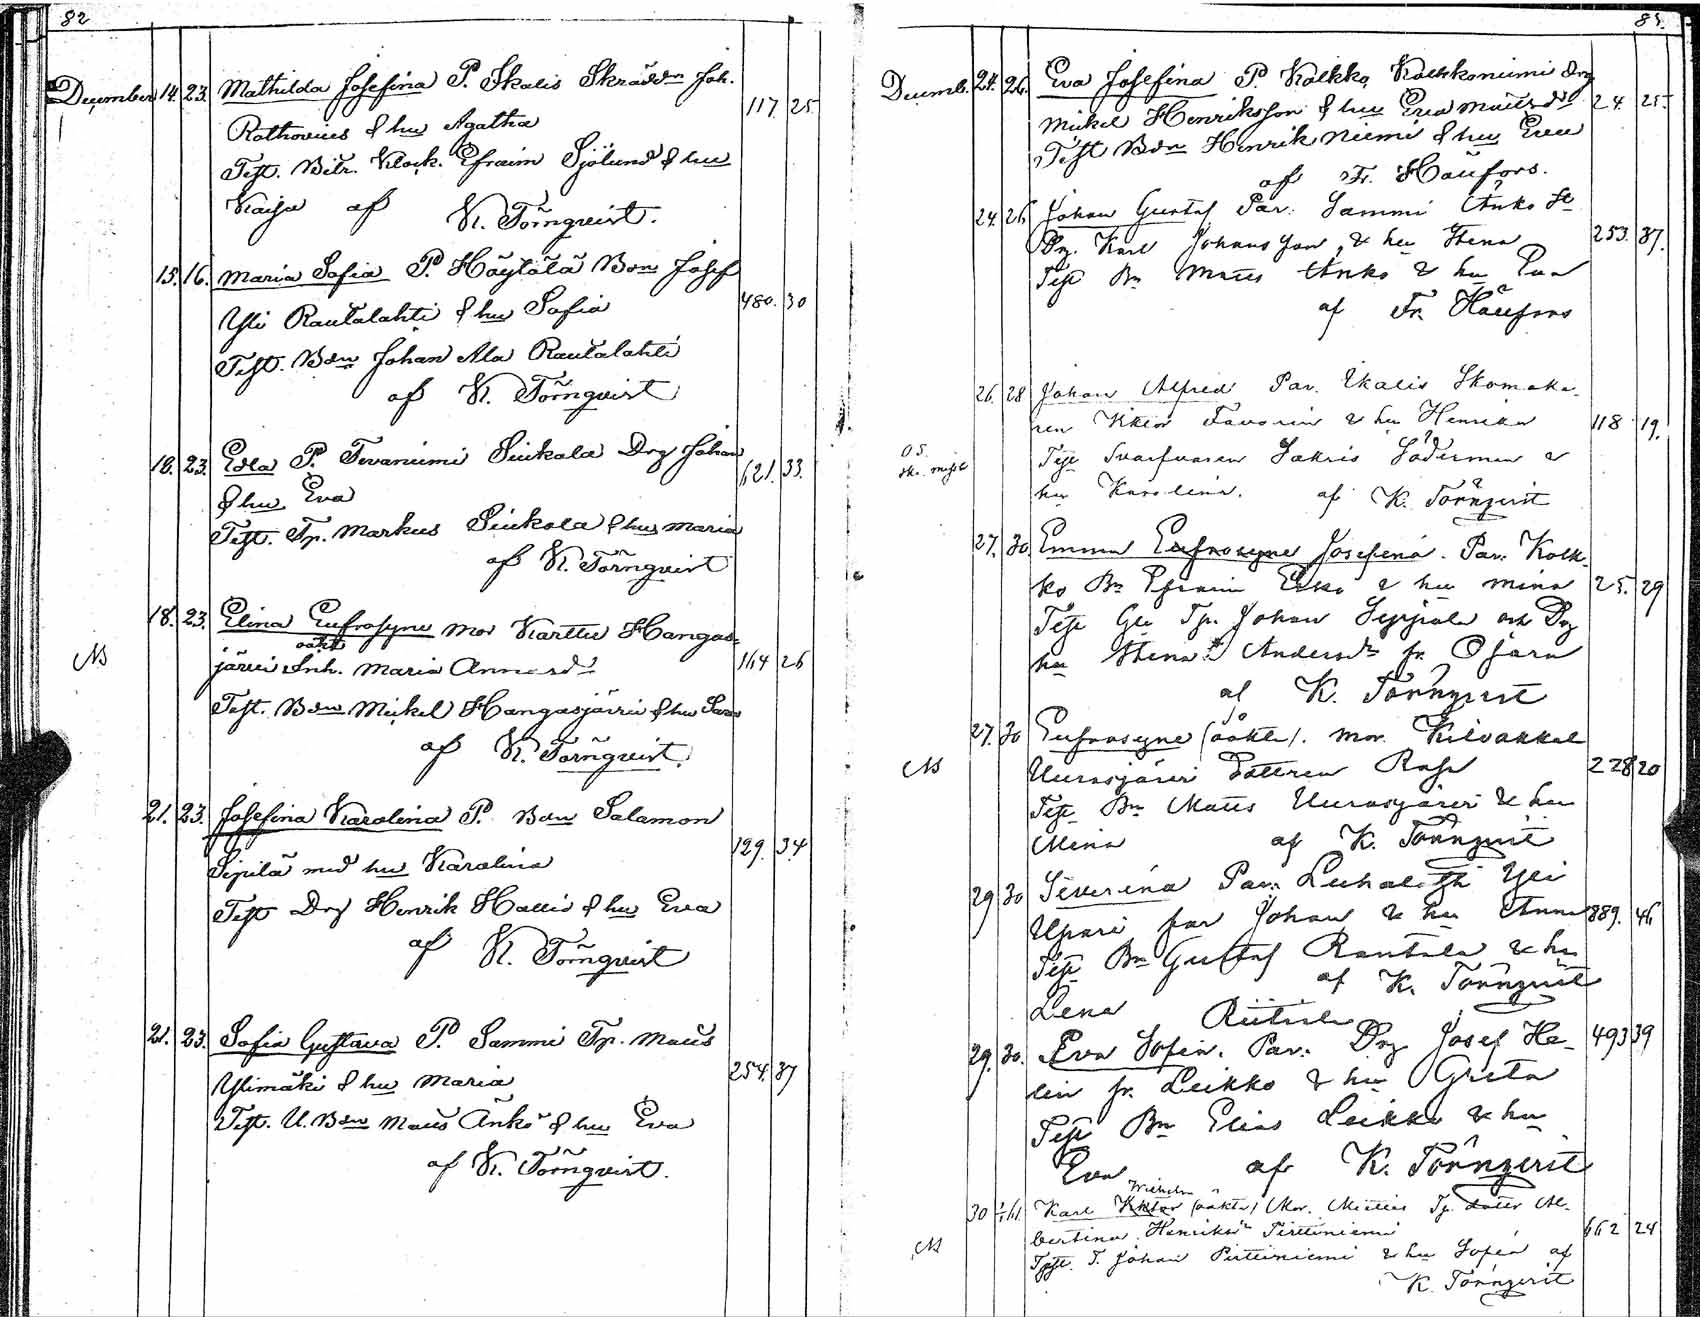 82
December 14. 23. Mathilda Josefina P. Skalis Skräddn Joh.
Rothovius & hu Agatha 117 25
Test. Bitr. Klock. Efraim Sjölund & hu
Kaisa af K. Törnqvist.
15. 16. Maria Sofia P. Höytölä Bdn Josef
Yli Rautalahti & hu Sofia 480. 30
Test. Bdn Johan Ala Rautalahti
af K. Törnqvist
18. 23. Edla P. Tevaniemi Siukola Drg Johan
& hu Eva 621. 33.
Test. Tp. Markus Siukola & hu Maria
af K. Törnqvist
18. 23. Elina Eufrosyne mor Karttu Hangas-
oäkt
NB järvi Inh. Maria Annasdr 164 26
Test. Bdn Mickel Hangasjärvi & hu Sara
af K. Törnqvist.
21. 23. Josefina Karolina P. Bdn Salamon
Sipilä med hu Karolina 129. 34
Test Drg Henrik Hallis & hu Eva
af K. Törnqvist
21. 23. Sofia Gustava P. Sammi Tp. Matts
Ylimäki & hu Maria 254. 37
Test. U. Bdn Matts Änkö & hu Eva
af K. Törnqvist.
83.
Decemb. 24. 26. Eva Josefina P. Kolkko, Kolkkoniemi Drg
Mickel Henriksson & hu Eva Mattsdr 24. 25.
Test Bdn Henrik Niemi & hu Eva
af Fr. Häufors.
24. 26 Johan Gustaf Par. Sammi Änko
Drg. Karl Johansson, & hu Stena 253. 37.
Test Bn Matts Änko & hu Eva
af Fr. Häufors
26. 28 Johan Alfred Par. Ikalis Skomaka-
ren Viktor Favorin & hu Henrika 118 19.
Test Svarfvaren Sakris Söderman &
hu Karolina. af K. Törnqvist
27. 30. Emma Eufrosyne Josefina. Par. Kolk-
ko Bn Efraim Erko & hu Mina 25. 29
Test Gl. Tp. Johan Seppälä och Drg
hu Stena Andersdr fr. Ojara
af K. Törnqvist
27. 30 Eufrosyne (oäkta). Mor. Kilvakkala
NB Uurasjärvi Dottren Rosa 228 20
Test Bn Matts Uurasjärvi & hu
Mina af K. Törnqvist
29 30 Severina Par. Luhalahti Yli
Upari far Johan & hu Anna 389. 46
Test Bn Gustaf Rantala & hu
af K. Törnqvist
Lena
29. 30. Eva Sofia. Par. Drg Josef He- 493 39
lin fr. Leikko & hu Greta
Test Bn Elias Leikko & hu
Eva af K. Törnqvist
Wilhelm
30 1/1 61. Karl Viktor (oäkta) Mor. Miettis Tp. dotter Al-
bertina Henriksdr Pirttiniemi 662 24
NB Test. T. Johan Pirttiniemi & hu Sofia af
K. Törnqvist